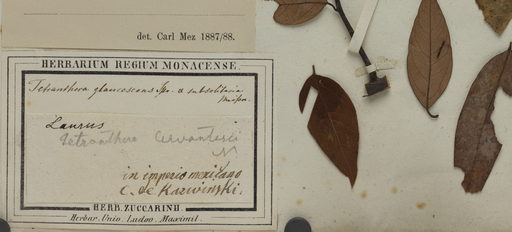 det. Carl Mez 1887/88.
HERBARIUM REGIUM MONACENSE.
Tetranthera glaucescens Spr. α subsolitaria
Meissn.
Laurus
Tetranthera Cervantesii
N
in imperio mexicano
C. de Karwinski.
HERB. ZUCCARINII
Herbar. Univ. Ludov. Maximil.